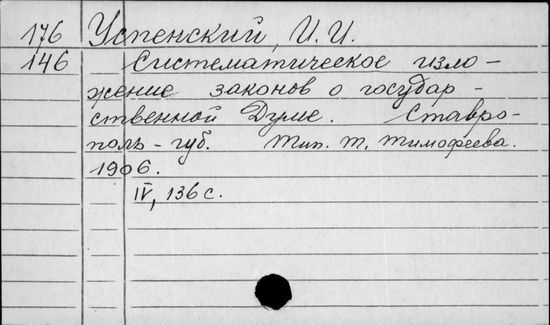 176 Успенский, И. И.
146 Систематическое изло-
жение законов о государ-
ственной Думе. Ставро-
поль-губ. Тип. Т. Тимофеева.
1906.
IV, 136 с.